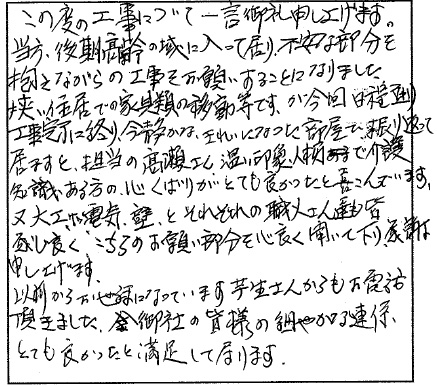 この度の工事について一言御礼申し上げます。
当方、後期高齢の域に入って居り、不安な部分を
抱えながらの工事をお願いすることになりました。
狭い住居での家具類の移動等です、が今回日程通り
工事完了に終り、今静かな、きれいになった部屋で、振り返って
居ますと、担当の高瀬さん、温い印象、人柄まで介護
知識、ある方の、心くばりがとても良かったと喜こんでいます。
又大工、電気、壁、とそれぞれの職人さん達も皆
感じ良く、こちらのお願い部分を心良く聞いて下り、感謝
申し上げます。
以前からお世話になっています芋生さんからもお電話
頂きました、御社の皆様の細やかな連係、
とても良かったと満足して居ります.